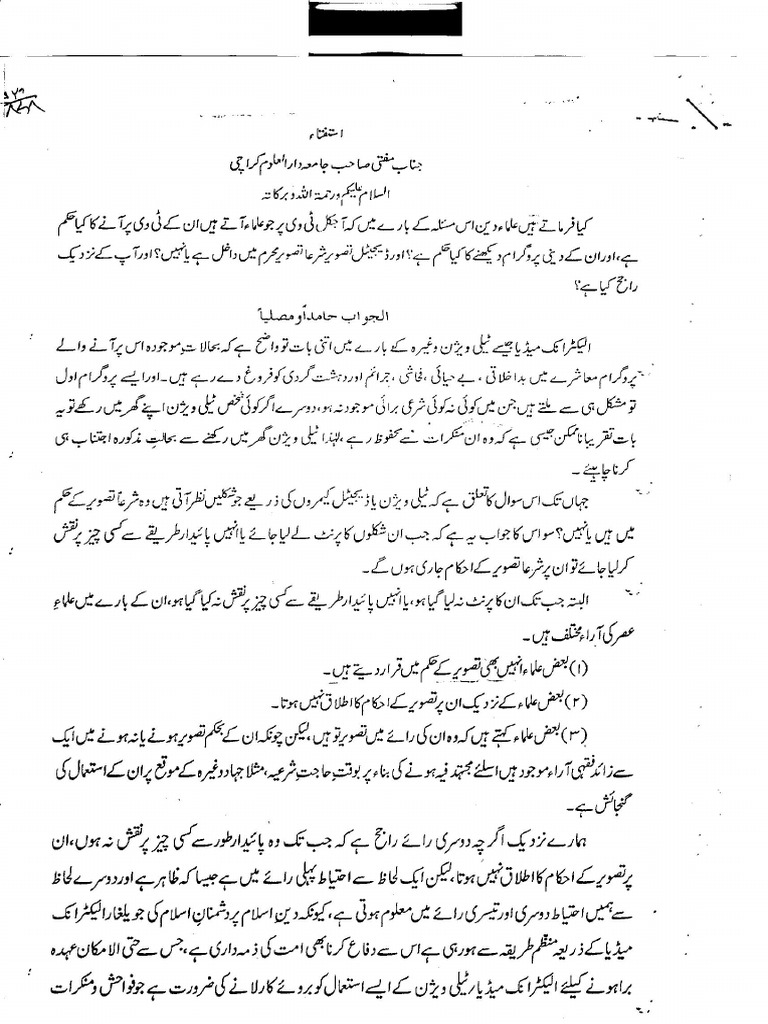 استفتاء
جناب مفتی صاحب جامعہ دارالعلوم کراچی
السلام علیکم ورحمۃ اللہ وبرکاتہ
کیا فرماتے ہیں علماء دین اس مسئلہ کے بارے میں کہ آجکل ٹی وی پر جو علماء آتے ہیں ان کے ٹی وی پر آنے کا کیا حکم
ہے، اور ان کے دینی پروگرام دیکھنے کا کیا حکم ہے؟ اور ڈیجیٹل تصویر شرعا تصویر محرم میں داخل ہے یا نہیں؟ اور آپ کے نزدیک
راجح کیا ہے؟
الجواب حامداً و مصلیاً
الیکٹرانک میڈیا جیسے ٹیلی ویژن وغیرہ کے بارے میں اتنی بات تو واضح ہے کہ بحالاتِ موجودہ اس پر آنے والے
پروگرام معاشرے میں بداخلاقی، بے حیائی، فحاشی، جرائم اور دہشت گردی کو فروغ دے رہے ہیں۔ اور ایسے پروگرام اول
تو مشکل ہی سے ملتے ہیں جن میں کوئی نہ کوئی شرعی برائی موجود نہ ہو، دوسرے اگر کوئی شخص ٹیلی ویژن اپنے گھر میں رکھے تو یہ
بات تقریبا ناممکن جیسی ہے کہ وہ ان منکرات سے محفوظ رہے، لہٰذا ٹیلی ویژن گھر میں رکھنے سے بحالتِ مذکورہ اجتناب ہی
کرنا چاہیئے۔
جہاں تک اس سوال کا تعلق ہے کہ ٹیلی ویژن یا ڈیجیٹل کیمروں کی ذریعے جو شکلیں نظر آتی ہیں وہ شرعاً تصویر کے حکم
میں ہیں یا نہیں؟ سو اس کا جواب یہ ہے کہ جب ان شکلوں کا پرنٹ لے لیا جائے یا انہیں پائیدار طریقے سے کسی چیز پر نقش
کر لیا جائے تو ان پر شرعا تصویر کے احکام جاری ہوں گے۔
البتہ جب تک ان کا پرنٹ نہ لیا گیا ہو، یا انہیں پائیدار طریقے سے کسی چیز پر نقش نہ کیا گیا ہو، ان کے بارے میں علماءِ
عصر کی آراء مختلف ہیں۔
(۱) بعض علماء انہیں بھی تصویر کے حکم میں قرار دیتے ہیں۔
(۲) بعض علماء کے نزدیک ان پر تصویر کے احکام کا اطلاق نہیں ہوتا۔
(۳) بعض علماء کہتے ہیں کہ وہ ان کی رائے میں تصویر تو ہیں، لیکن چونکہ ان کے بحکم تصویر ہونے یا نہ ہونے میں ایک
سے زائد فقہی آراء موجود ہیں اسلئے مجتہد فیہ ہونے کی بناء پر بوقتِ حاجتِ شرعیہ، مثلا جہاد وغیرہ کے موقع پر ان کے استعمال کی
گنجائش ہے۔
ہمارے نزدیک اگرچہ دوسری رائے راجح ہے کہ جب تک وہ پائیدار طور سے کسی چیز پر نقش نہ ہوں، ان
پر تصویر کے احکام کا اطلاق نہیں ہوتا، لیکن ایک لحاظ سے احتیاط پہلی رائے میں ہے جیسا کہ ظاہر ہے اور دوسرے لحاظ
سے ہمیں احتیاط دوسری اور تیسری رائے میں معلوم ہوتی ہے، کیونکہ دینِ اسلام پر دشمنانِ اسلام کی جو یلغار الیکٹرانک
میڈیا کے ذریعہ منظم طریقہ سے ہورہی ہے اس سے دفاع کرنا بھی امت کی ذمہ داری ہے، جس سے حتی الامکان عہدہ
برا ہونے کیلئے الیکٹرانک میڈیا/ٹیلی ویژن کے ایسے استعمال کو بروئے کار لانے کی ضرورت ہے جو فواحش و منکرات